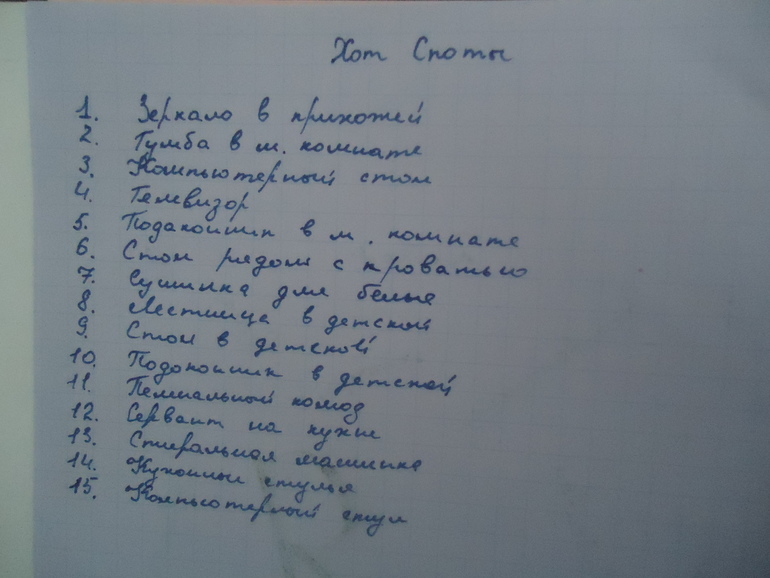 Хот Споты
1. Зеркало в прихожей
2. Тумба в м. комнате
3. Компьютерный стол
4. Телевизор
5. Подаконник в м. комнате
6. Стол рядом с кроватью
7. Сушилка для белья
8. Лестница в детской
9. Стол в детской
10. Подоконник в детской
11. Пеленальный комод
12. Сервант на кухне
13. Стиральная машинка
14. Кухонные стулья
15. Компьютерный стул